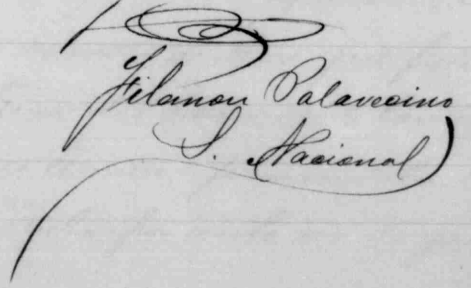 Filanon Palavecino
S. Nacional